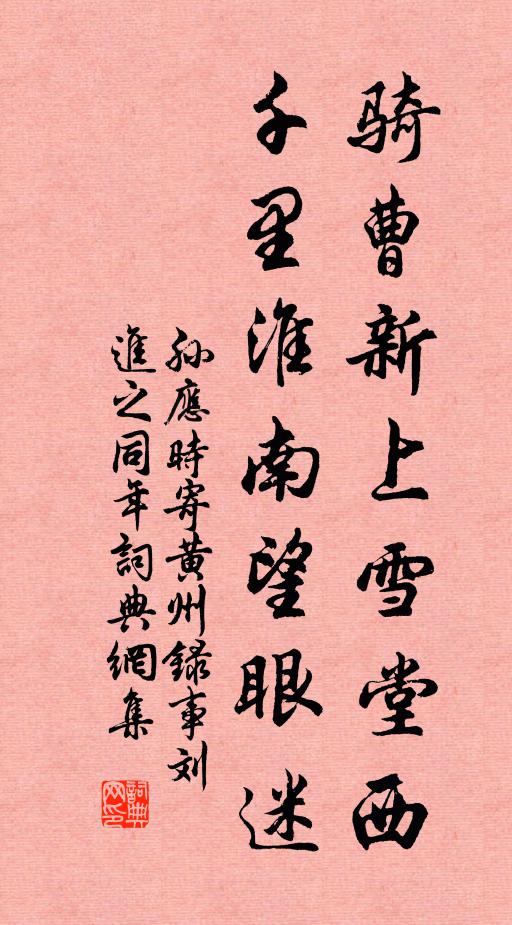 骑曹新上雪堂西
千里淮南望眼迷
孙應時寄黄州錄事刘
進之同年詞典網集
詞典网印